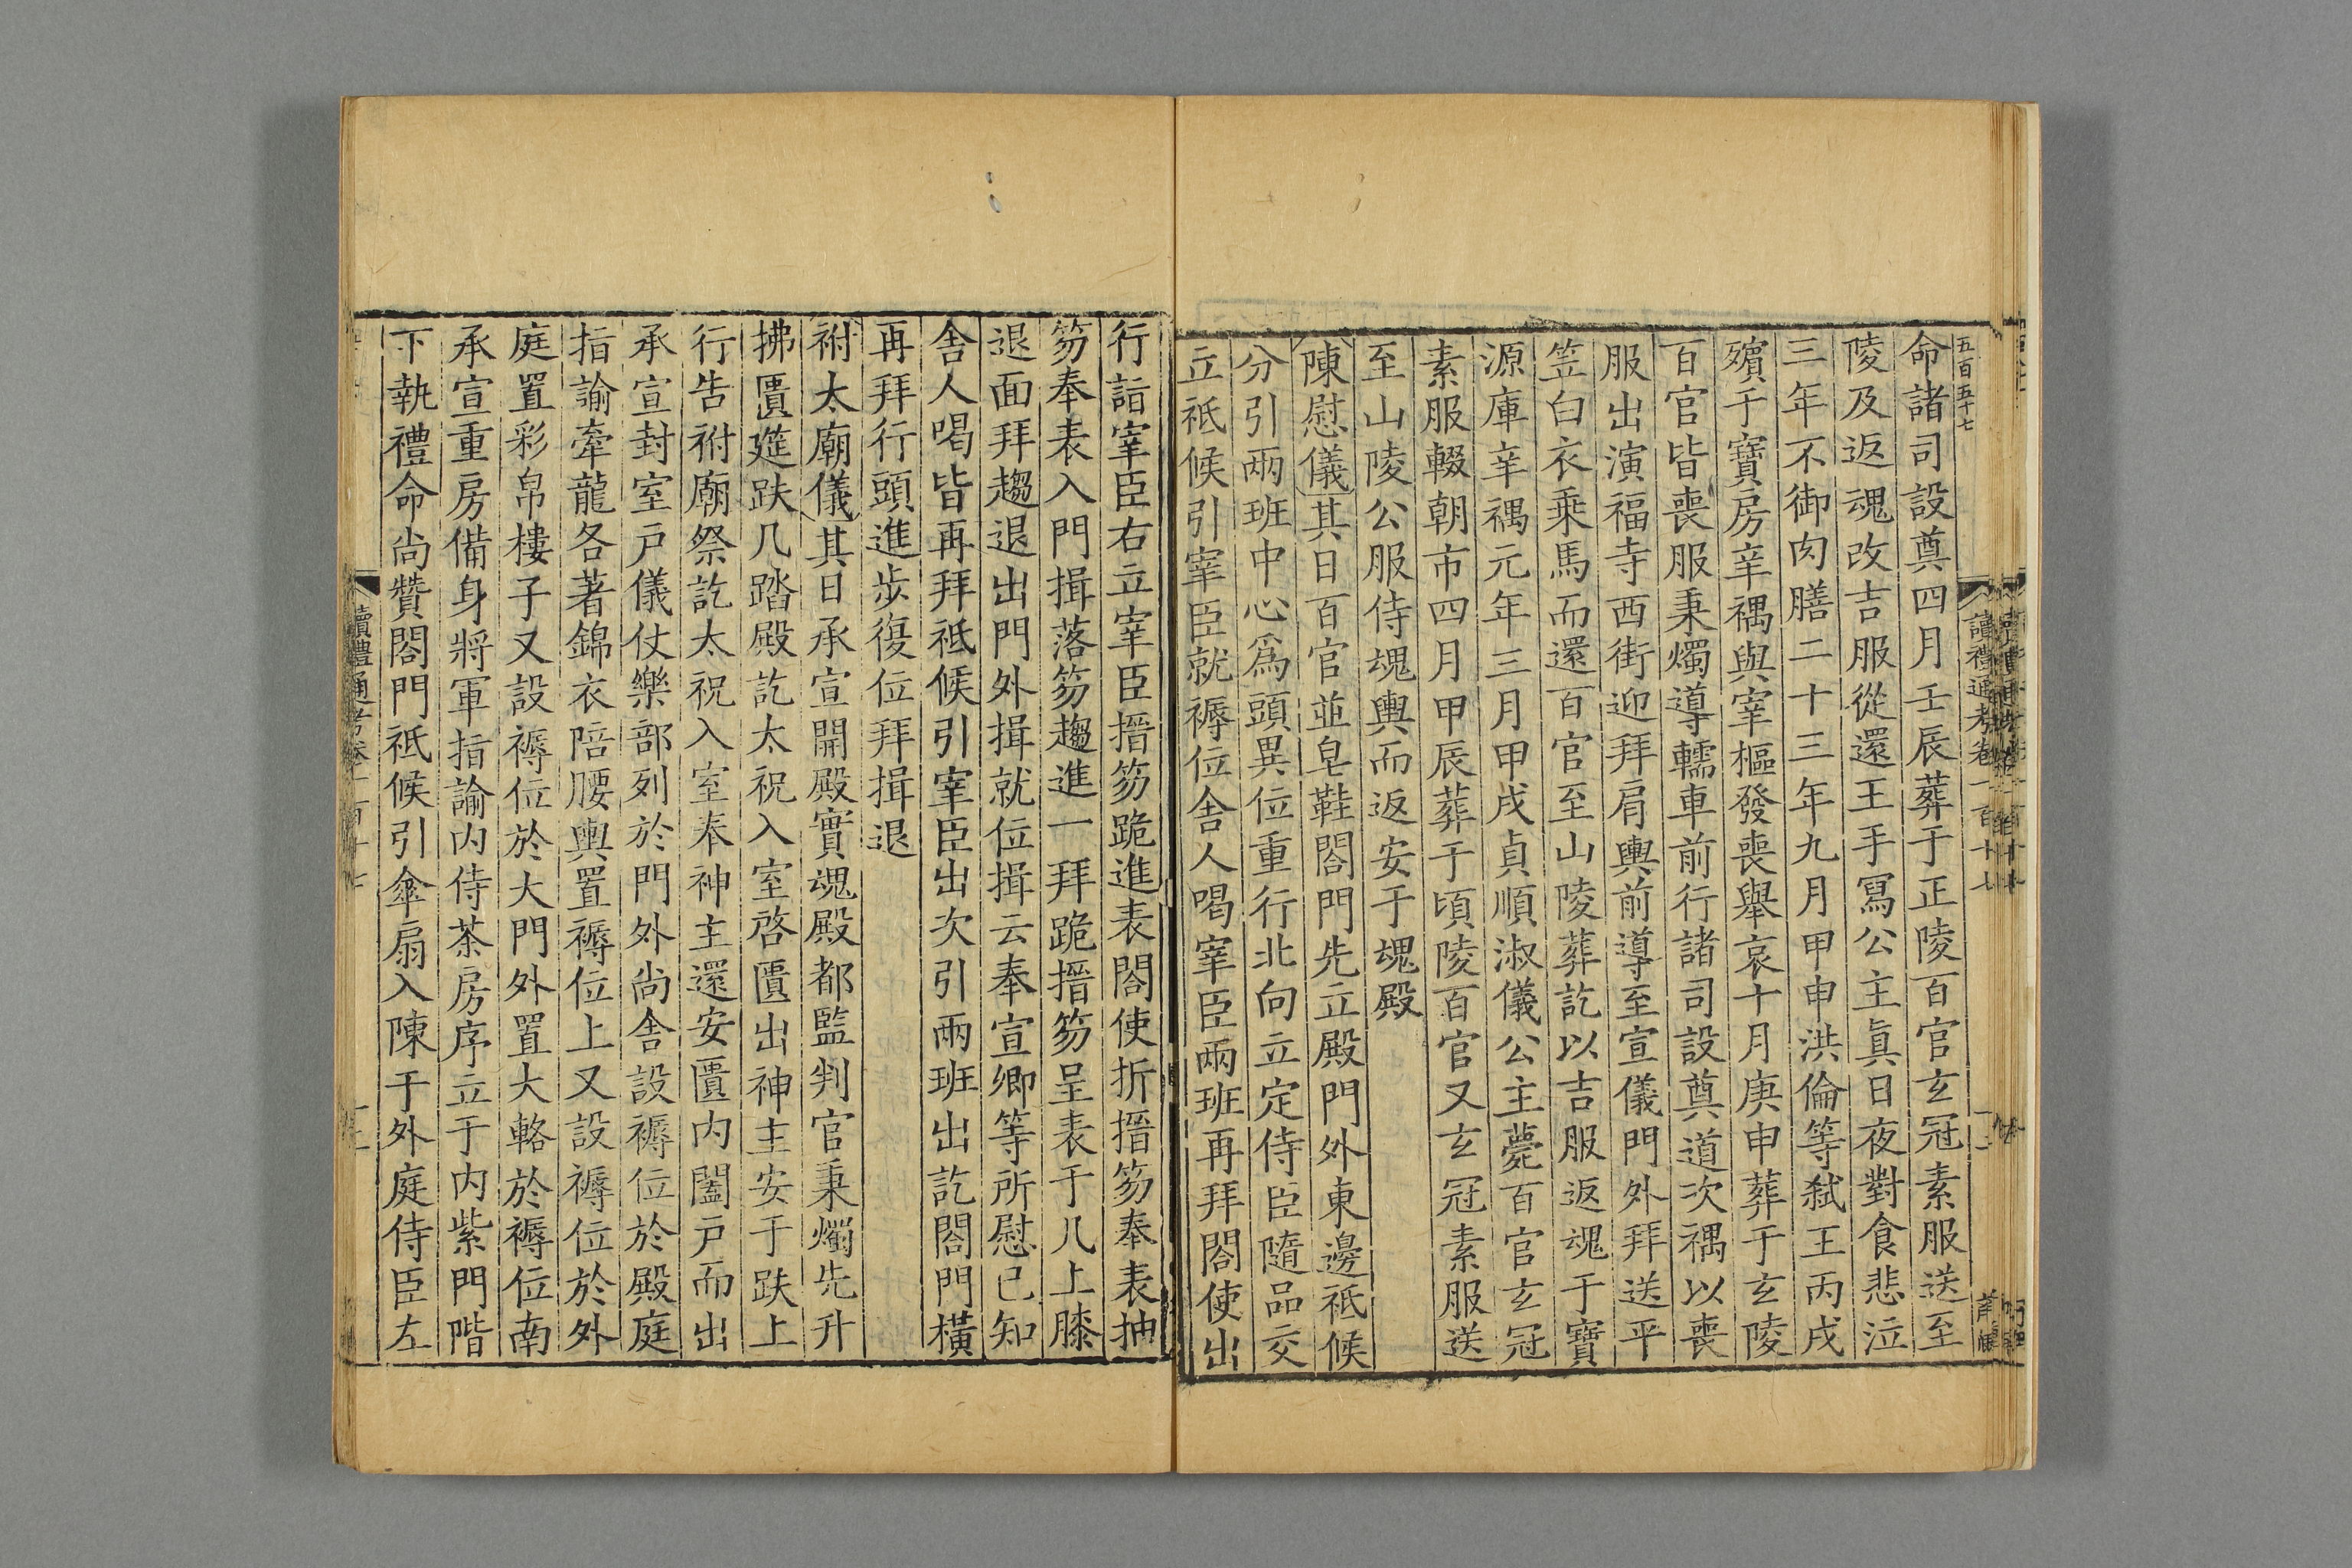 五百五十七
讀禮通考卷一百十七
命諸司設奠四月壬辰葬于正陵百官玄冠素服送至
陵及返魂改吉服從還王手寫公主眞日夜對食悲泣
三年不御肉膳二十三年九月甲申洪倫等弑王丙戌
殯于寶房辛禑與宰樞發喪舉哀十月庚申葬于玄陵
百官皆喪服秉燭導轜車前行諸司設奠道次禑以喪
服出演福寺西街迎拜肩輿前導至宣儀門外拜送平
笠白衣乘馬而還百官至山陵葬訖以吉服返魂于寶
源庫辛禑元年三月甲戌貞順淑儀公主薨百官玄冠
素服輟朝市四月甲辰葬于頃陵百官又玄冠素服送
至山陵公服侍魂輿而返安于魂殿
陳慰儀其日百官並皂鞋閤門先立殿門外東邊祗候
分引兩班中心爲頭異位重行北向立定侍臣隨品交
立祗候引宰臣就褥位舍人喝宰臣兩班再拜閤使出
行詣宰臣右立宰臣搢笏跪進表閤使折搢笏奉表抽
笏奉表入門揖落笏趨進一拜跪搢笏呈表于几上膝
退面拜趨退出門外揖就位揖云奉宣卿等所慰已知
舍人喝皆再拜祗候引宰臣出次引兩班出訖閤門橫
再拜行頭進步復位拜揖退
祔太廟儀其日承宣開殿實魂殿都監判官秉燭先升
拂匱筵趺几踏殿訖太祝入室啓匱出神主安于趺上
行告祔廟祭訖太祝入室奉神主還安匱內闔戶而出
承宣封室戶儀仗樂部列於門外尚舍設褥位於殿庭
指諭牽龍各著錦衣陪腰輿置褥位上又設褥位於外
庭置彩帛樓子又設褥位於大門外置大輅於褥位南
承宣重房備身將軍指諭內侍茶房序立于內紫門階
下執禮命尚贊閤門祗候引傘扇入陳于外庭侍臣左
讀禮通考卷一百十七